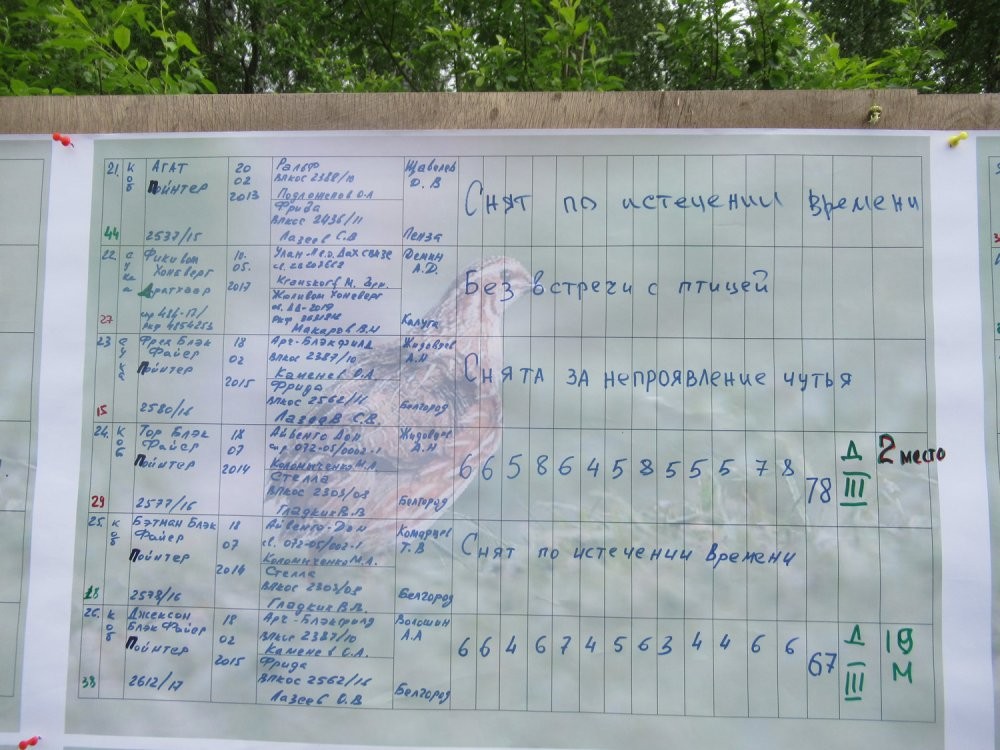 21. Коб Агат 20 Ральф Щавелев
02 ВПКОС 2388/10 Д. В
Пойнтер 2013 Подложенов О.А
Фрида
ВПКОС 2436/11
44 2537/15 Лазеев С.В Пенза
Снят по истечении времени
22. сука 10. Демин
Хонсберг 05. А.Д.
Дратхаар 2017
27 Макаров В.Н Калуга
Без встречи с птицей
23 сука Фрея Блэк 18 Арч-Блэкфилд Жидовцев
Файер 02 ВПКОС 2387/10 А.Н
Пойнтер Каменев О.А.
2015 Фрида
15 2580/16 ВПКОС 2562/16 Белгород
Лазеев С.В.
Снята за непроявление чутья
24. Коб Тор Блэк 18 Айвенго Дон Жидовцев
Файер 07 св. 072-05/0002-1 А.Н
Пойнтер 2014 Коломыченко М.А.
Стелла
29 2577/16 ВПКОС 2303/08 Белгород
Гладких В.В
6 6 5 8 6 4 5 8 5 5 5 7 8 78 Д III 2 место
25. Коб Бэтман Блэк 18 Айвенго-Дон
Файер 07 св. 072-05/002-1 Т. В
Пойнтер 2014 Коломыченко М.А.
Стелла
18 2578/16 ВПКОС 2303/08 Белгород
Гладких В.В.
Снят по истечении времени
26. Коб Джексон 18 Арч-Блэкфилд Волошин
Блэк Файер 02 ВПКОС 2387/10 А.А
Пойнтер 2015 Каменев О.А.
Фрида
38 2612/17 ВПКОС 2562/16 Белгород
Лазеев О.В.
6 6 4 6 7 4 5 6 3 4 4 6 6 67 Д III 19 М